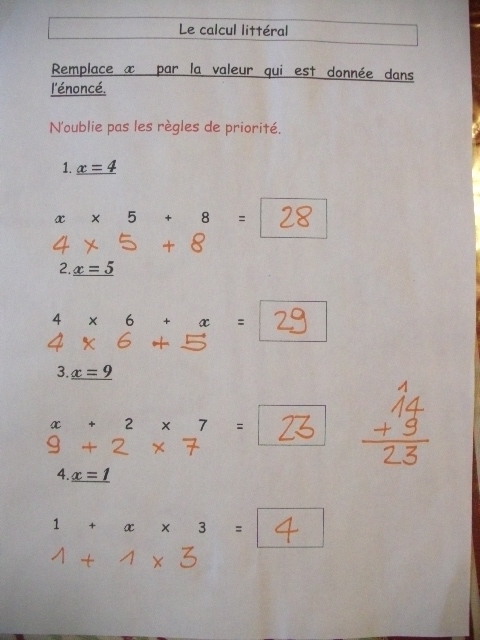 Le calcul littéral
Remplace x par la valeur qui est donnée dans
l'énoncé.
N'oublie pas les règles de priorité.
1. x = 4
x x 5 + 8 = 28
4 x 5 + 8
2. x = 5
4 x 6 + x = 29
4 x 6 + 5
3. x = 9
x + 2 x 7 = 23
9 + 2 x 7
1
14
+ 9
23
4. x = 1
1 + x x 3 = 4
1 + 1 x 3